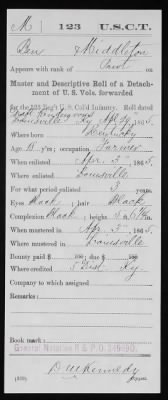 M | 123 | U.S.C.T.
Ben Middleton
Appears with rank of Pvt on
Muster and Descriptive Roll of a Detachment of U. S. Vols. forwarded
for the 123 Reg't U. S. Col'd Infantry. Roll dated
Louisville Apr 29, 1865.
Where born Kentucky
Age 18 y'rs; occupation Farmer
When enlisted Apr. 3, 1865.
Where enlisted Louisville
For what period enlisted 3 years.
Eyes Black; hair Black
Complexion Black; height 5 ft. in.
When mustered in Apr. 3, 1865.
Where mustered in Louisville
Bounty paid $ 100; due $ 100
Where credited 5 Dist Ky
Company to which assigned
Remarks:
Book mark:
General Notation R & P O
D W Kennedy
(339) Copyist.